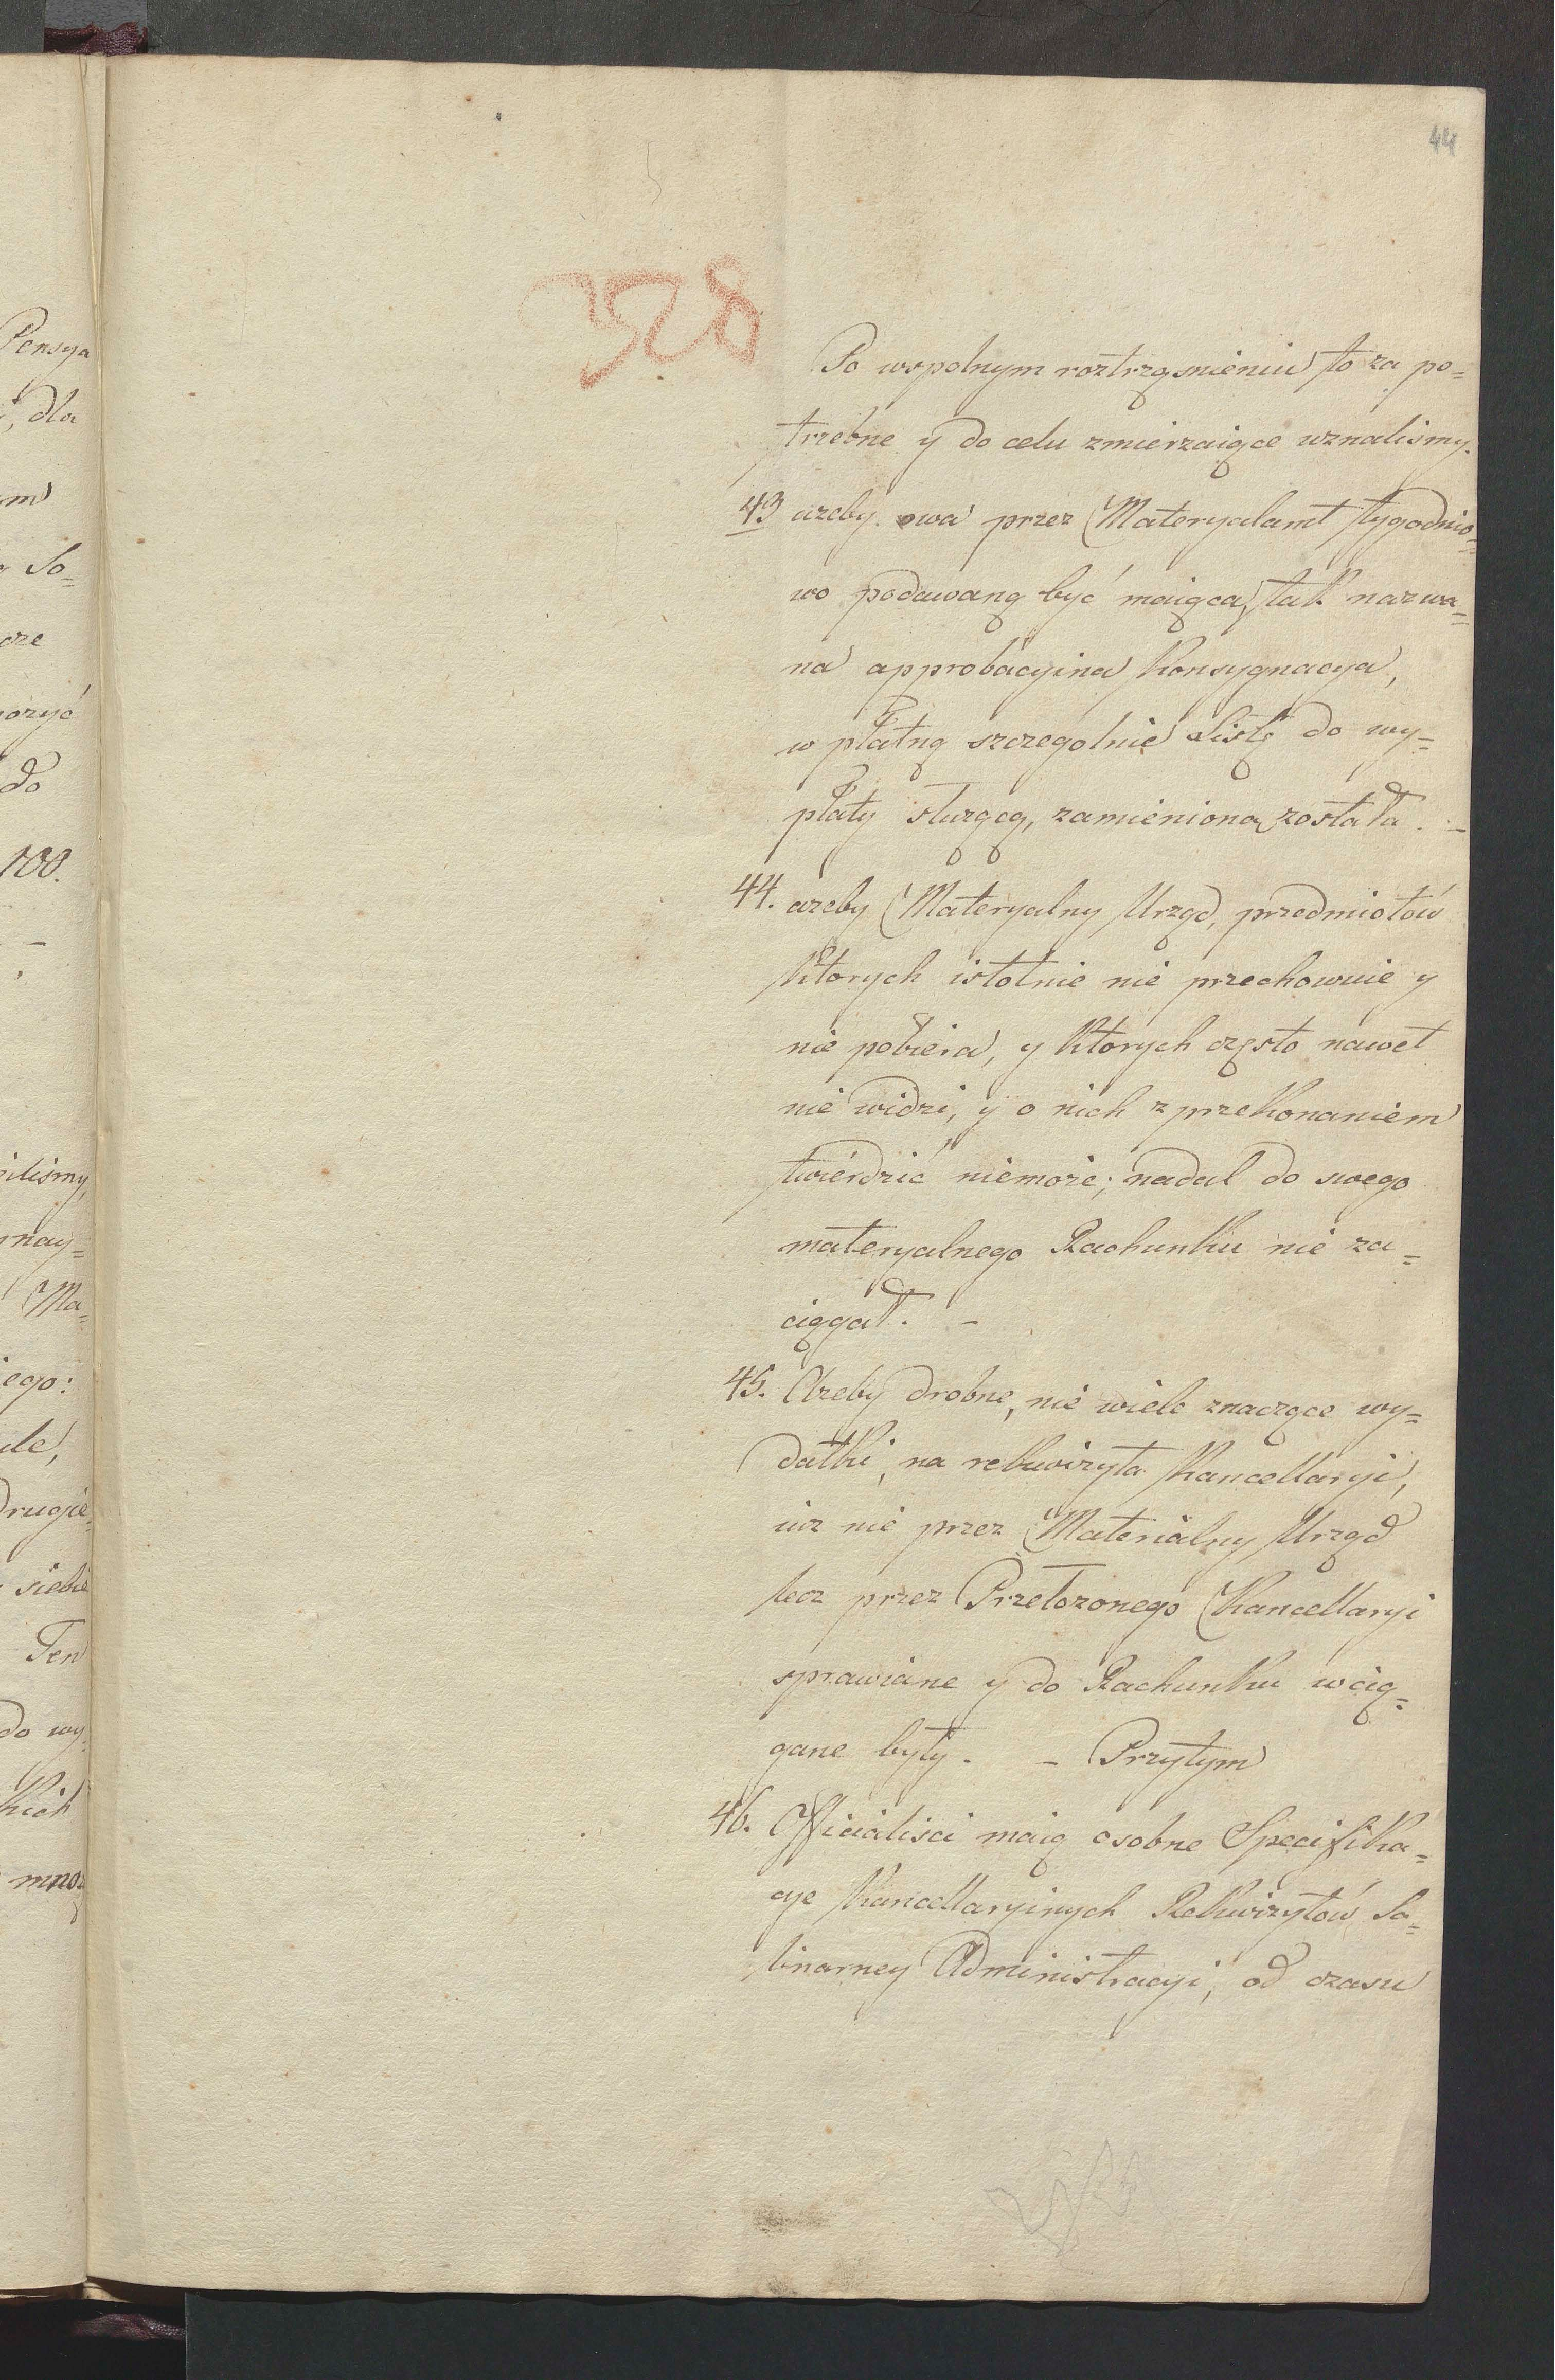 44
358
Po wspolnym roztrząśnieniu to za po=
trzebne y do celu zmierzaiące uznalismy.
43 azeby owa przez Materyalamt tygodnio=
wo podawaną być maiąca, tak nazwa=
na approbacyina Konsygnacya,
w płatną szczegolnie Listę do wy=
płaty służącą, zamieniona została. –
44. azeby Materyalny Urząd, przedmiotów
ktorych istotnie nie przechowuie y
nie pobiera, y ktorych często nawet
nie widzi, y o nich z przekonaniem
twierdzić niemoże; nadal do swego
materyalnego Rachunku nie za=
ciągał. –
45. Azeby drobne, nie wiele znaczące wy=
datki, na rekwizyta Kancellaryi,
iuz nie przez Materialny Urząd
lecz przez Przełozonego Kancellaryi
sprawiane y do Rachunku wcią=
gane były. – Przytym
46. Officialisci maią osobne Specifika=
cye Kancellaryinych Rekwizytów Sa=
linarney Administracyi, od czasu
Pensya
dla
So=
do
100.
Ma=
ego:
siebie
Ten
do wy